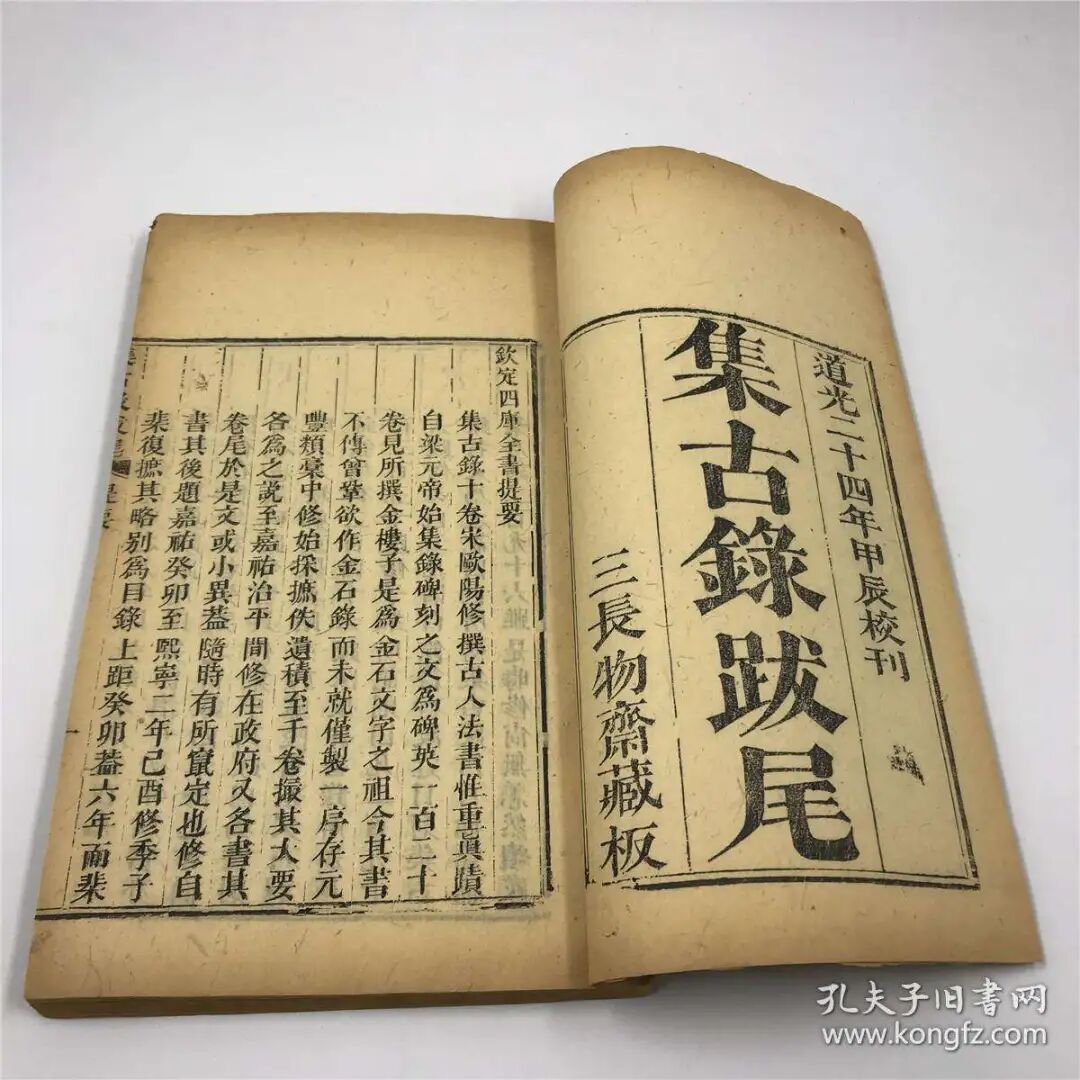 道光二十四年甲辰校刊
集古錄跋尾
三長物齋藏板
欽定四庫全書提要
集古錄十卷宋歐陽修撰古人法書惟重眞蹟
自梁元帝始集錄碑刻之文爲碑英一百二十
卷見所撰金樓子是爲金石文字之祖今其書
不傳曾鞏欲作金石錄而未就僅製一序存元
豐類稾中修始採摭佚遺積至千卷撮其大要
各爲之說至嘉祐治平間修在政府又各書其
卷尾於是文或小異葢隨時有所竄定也修自
書其後題嘉祐癸卯至熙寧二年己酉修季子
棐復摭其略别爲目錄上距癸卯葢六年而棐
孔夫子旧书网
www.kongfz.com